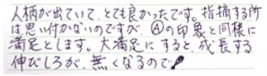 人柄が出ていて、とても良かったです。指摘する所
は思い付かないのですが、Ⓐの印象と同様に
満足とします。大満足にすると、成長する
伸びしろが、無くなるので!